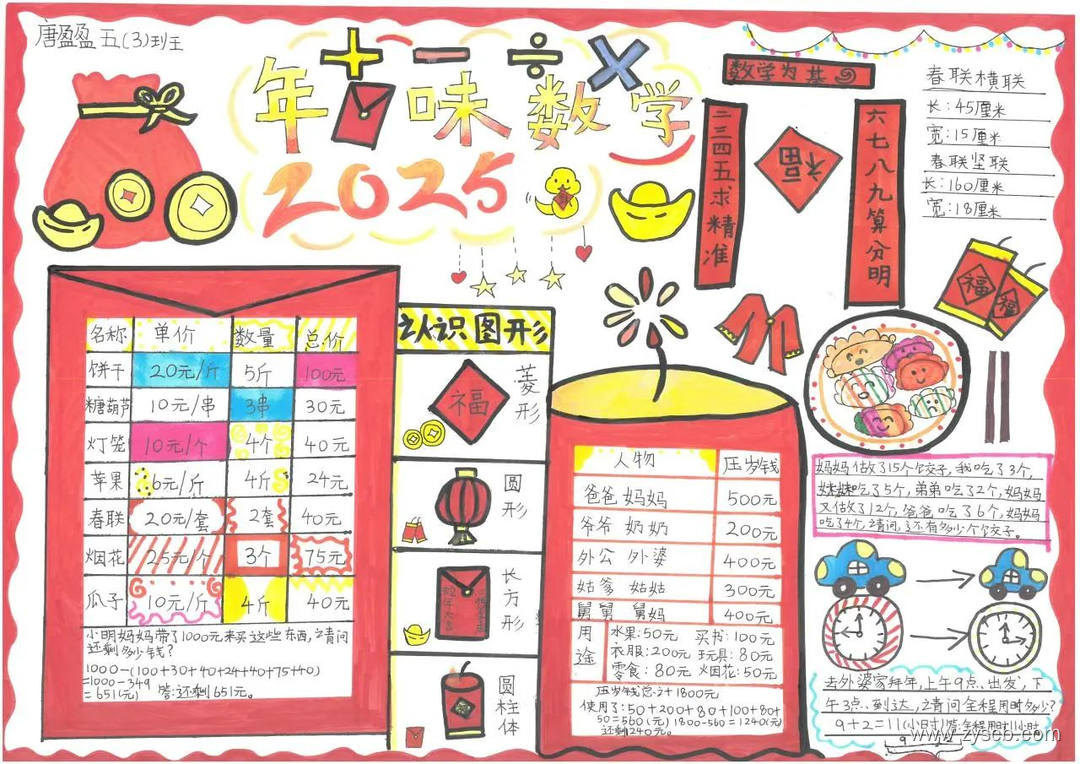 唐盈盈 五(3)班
年味数学
2025
数学为基
二三四五求精准
福
六七八九算分明
春联横联
长:45厘米
宽:15厘米
春联坚联
长:160厘米
宽:18厘米
福
福
名称 单价 数量 总价
饼干 20元/斤 5斤 100元
糖葫芦 10元/串 3串 30元
灯笼 10元/个 4个 40元
苹果 6元/斤 4斤 24元
春联 20元/套 2套 40元
烟花 25元/个 3个 75元
瓜子 10元/斤 4斤 40元
小明妈妈带了1000元来买这些东西,请问
还剩多少钱?
1000-(100+30+40+24+40+75+40)
=1000-349
=651(元) 答:还剩651元。
认识图形
福
菱形
圆形
长方形
圆柱体
人物 压岁钱
爸爸 妈妈 500元
爷爷 奶奶 200元
外公 外婆 400元
姑爹 姑姑 300元
舅舅 舅妈 400元
用途
水果:50元 买书:100元
衣服:200元 玩具:80元
零食:80元 烟花:50元
压岁钱总计1800元
使用了:50+200+80+100+80+
50=560(元) 1800-560=1240(元)
还剩240元。
妈妈做了15个饺子,我吃了3个,
妹妹吃了5个,弟弟吃了2个,妈妈
又做了12个,爸爸吃了6个,妈妈
吃了4个,请问,还有多少个饺子。
去外婆家拜年,上午9点出发,下
午3点到达,请问全程用时多少?
9+2=11(小时)答:全程用时11小时
www.zyscb.com